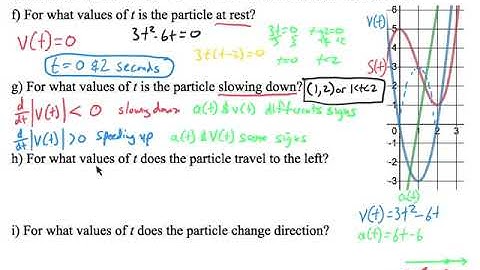 f) For what values of t is the particle at rest?
V(t)=0
3t²-6t=0
3t(t-2)=0
3t=0 t-2=0
3 3 +2 +2
t=0 t=2
t=0 & 2 seconds
g) For what values of t is the particle slowing down?
(1,2) or 1<t<2
d/dt |V(t)| < 0 slowing down a(t) & v(t) different signs
d/dt |V(t)| > 0 speeding up a(t) & v(t) same signs
h) For what values of t does the particle travel to the left?
i) For what values of t does the particle change direction?
V(t)
S(t)
6
5
4
3
2
1
0
-1
-2
-3
1 2 3
a(t)
V(t)=3t²-6t
a(t)=6t-6